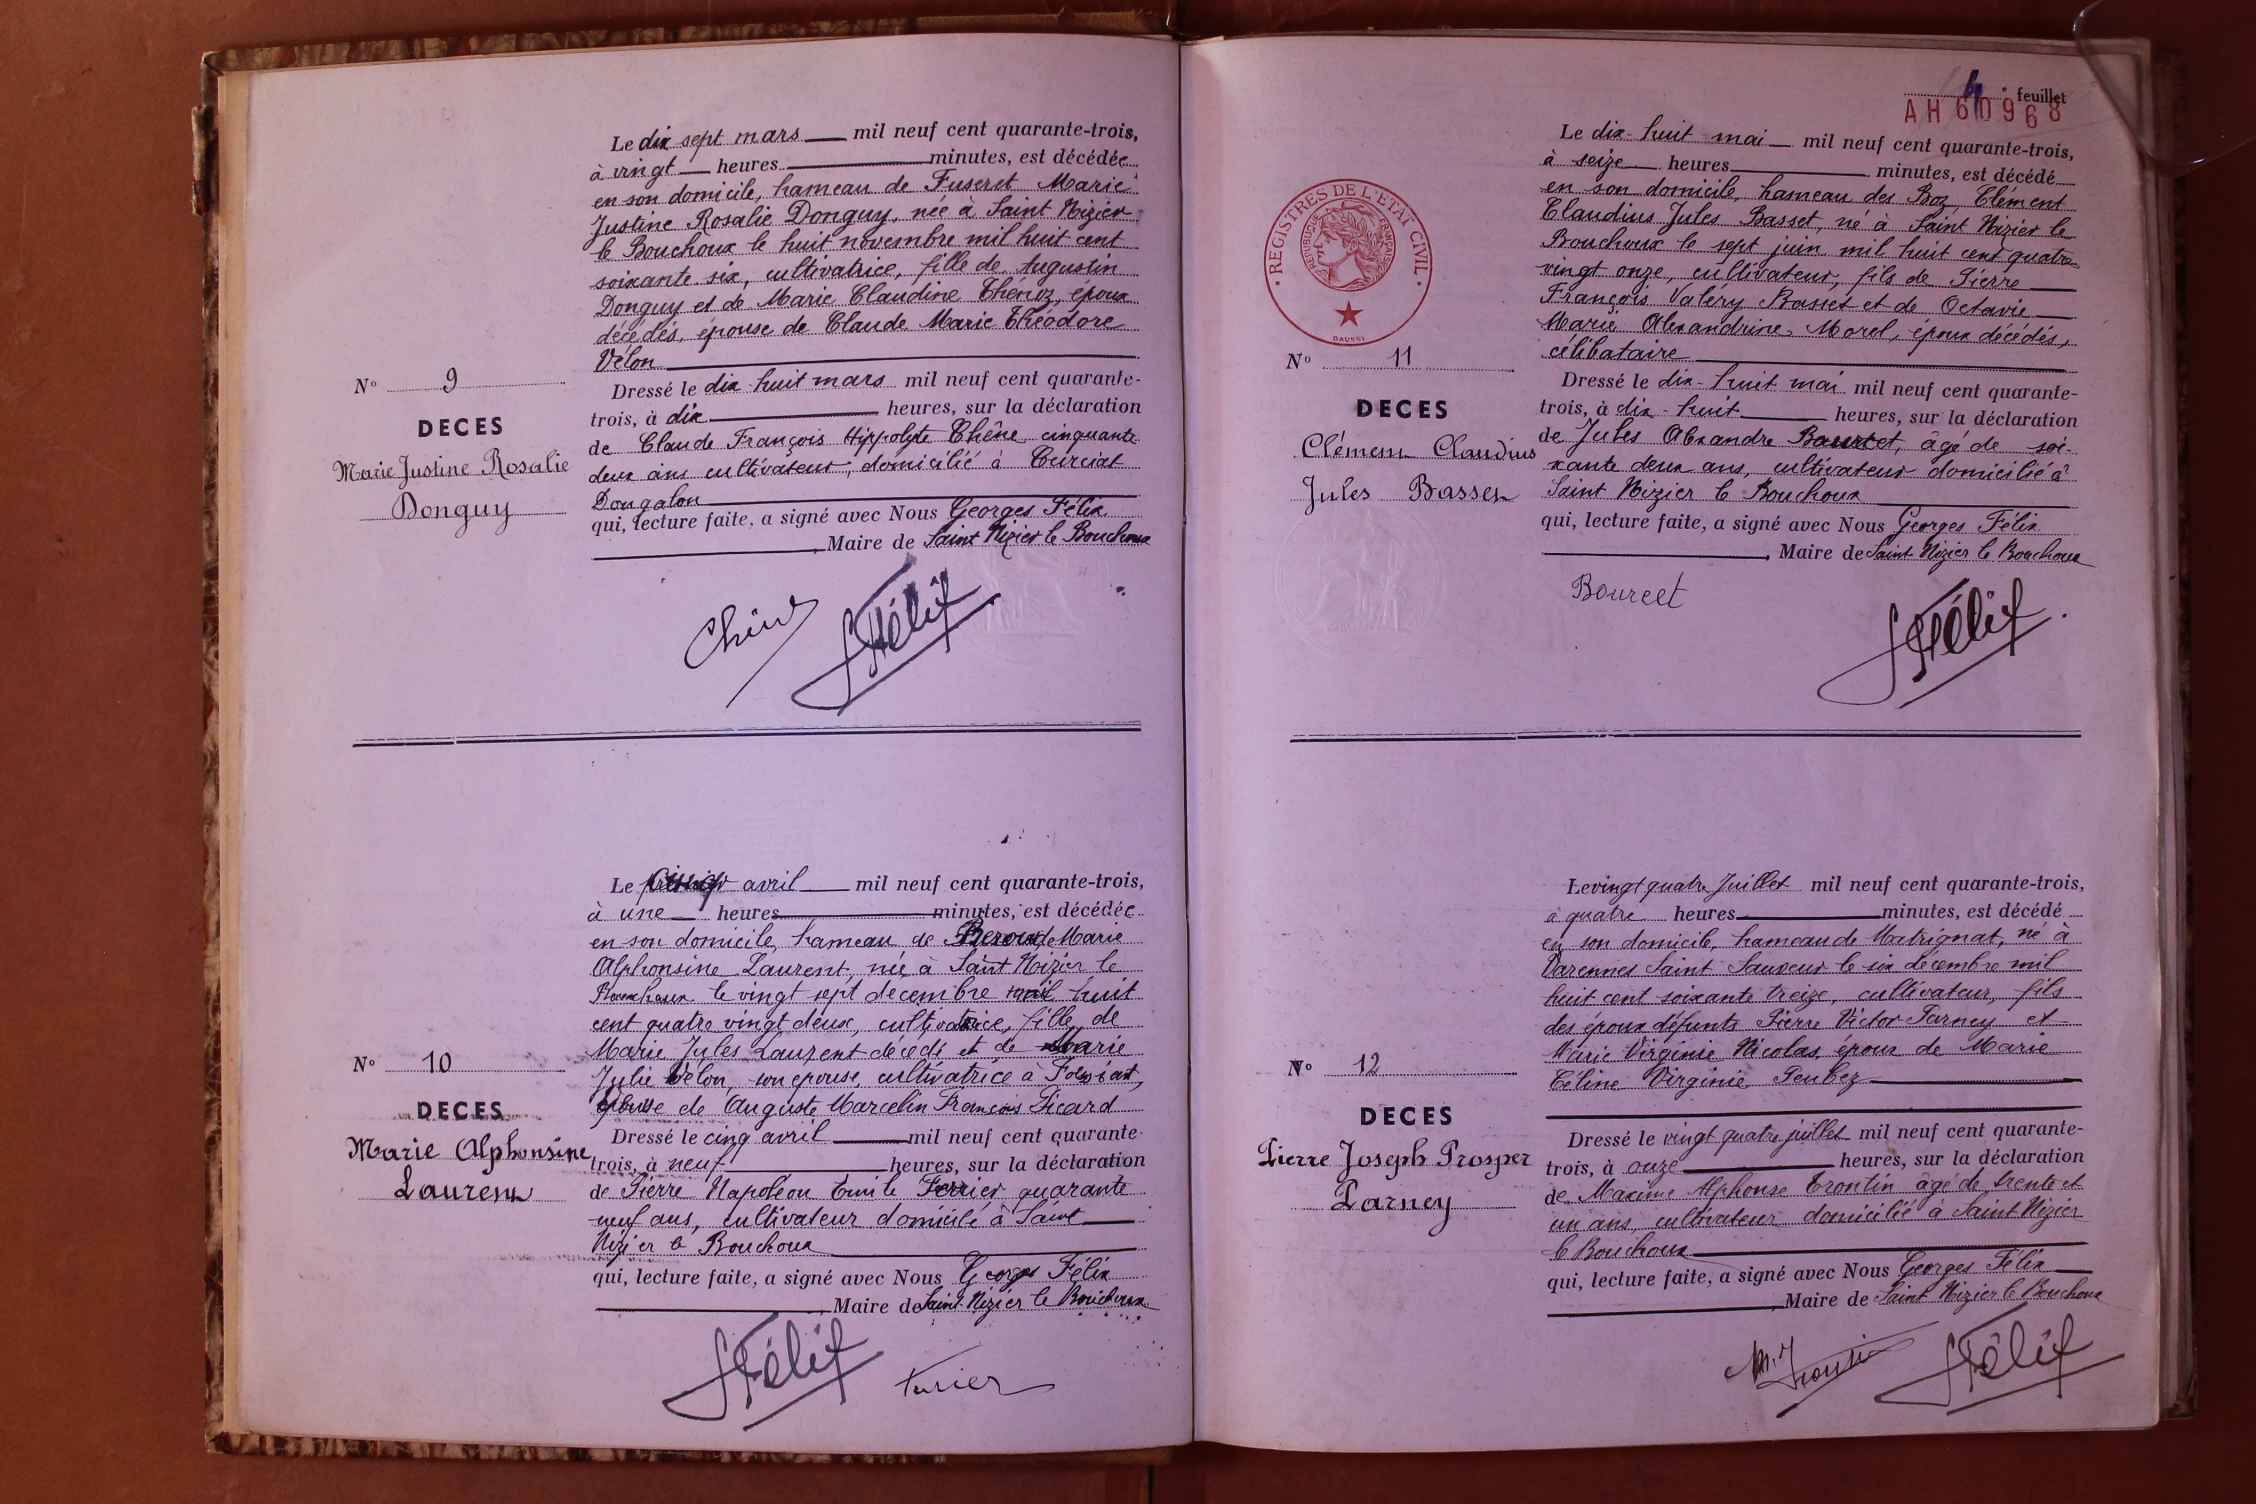 Le dix sept mars mil neuf cent quarante-trois,
à vingt heures minutes, est décédée
en son domicile, hameau de Fuseret Marie
Justine Rosalie Donguy, née à Saint Nizier
le Bouchoux le huit novembre mil huit cent
soixante six, cultivatrice, fille de Augustin
Donguy et de Marie Claudine Thénoz, époux
décédés, épouse de Claude Marie Théodore
Vélon
N° 9
DECES
Marie Justine Rosalie
Donguy
Dressé le dix huit mars mil neuf cent quarante-
trois, à dix heures, sur la déclaration
de Claude François Hippolyte Chêne cinquante
deux ans cultivateur, domicilié à Curciat
Dongalon
qui, lecture faite, a signé avec Nous Georges Félix
, Maire de Saint Nizier le Bouchoux
Félix
Le avril mil neuf cent quarante-trois,
à une heures minutes, est décédée
en son domicile, hameau de Marie
Alphonsine Laurent, née à Saint Nizier le
Bouchoux le vingt sept décembre mil huit
cent quatre vingt deux, cultivatrice, fille de
Marie Jules Laurent décédé et de Marie
Julie Velon, son épouse, cultivatrice à Foissiat,
épouse de Auguste Marcelin François Picard
N° 10
DECES
Marie Alphonsine
Laurent
Dressé le cinq avril mil neuf cent quarante-
trois, à neuf heures, sur la déclaration
de Pierre Napoléon Emile Ferrier quarante
neuf ans, cultivateur domicilé à Saint
Nizier le Bouchoux
qui, lecture faite, a signé avec Nous Georges Félix
, Maire de Saint Nizier le Bouchoux
Félix
4e feuillet
AH 60968
REGISTRES DE L'ETAT CIVIL
REPUBLIQUE FRANÇAISE
DAUSSI
Le dix-huit mai mil neuf cent quarante-trois,
à seize heures minutes, est décédé
en son domicile, hameau des Boz, Clément
Claudius Jules Basset, né à Saint Nizier le
Bouchoux le sept juin mil huit cent quatre
vingt onze, cultivateur, fils de Pierre
François Valéry Basset et de Octavie
Marie Alexandrine Morel, époux décédés,
célibataire
N° 11
DECES
Clément Claudius
Jules Basset
Dressé le dix-huit mai mil neuf cent quarante-
trois, à dix-huit heures, sur la déclaration
de Jules Alexandre Bourcet, âgé de soi-
xante deux ans, cultivateur domicilié à
Saint Nizier le Bouchoux
qui, lecture faite, a signé avec Nous Georges Félix
, Maire de Saint Nizier le Bouchoux
Bourcet
Félix
Le vingt quatre Juillet mil neuf cent quarante-trois,
à quatre heures minutes, est décédé
en son domicile, hameau de Matrignat, né à
Varennes Saint Sauveur le six décembre mil
huit cent soixante treize, cultivateur, fils
des époux défunts Pierre Victor Parney et
Marie Virginie Nicolas, époux de Marie
Céline Virginie Peubez
N° 12
DECES
Pierre Joseph Prosper
Parney
Dressé le vingt quatre juillet mil neuf cent quarante-
trois, à onze heures, sur la déclaration
de Maxime Alphonse Trontin âgé de trente et
un ans, cultivateur domicilié à Saint Nizier
le Bouchoux
qui, lecture faite, a signé avec Nous Georges Félix
, Maire de Saint Nizier le Bouchoux
Félix